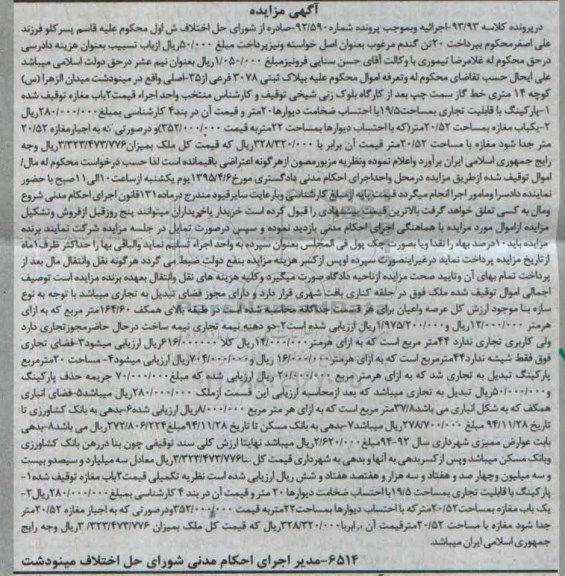 آگهی مزایده
درپرونده کلاسه ۹۳/۹۳-اجرائیه وبموجب پرونده شماره ۹۲/۵۹۰-صادره از شورای حل اختلاف ش اول محکوم علیه قاسم پسرکلو فرزند
علی اصغر محکوم بپرداخت ۲۰تن گندم مرغوب بعنوان اصل خواسته ونیزپرداخت مبلغ ۵۰/۰۰۰ریال ازباب تسبیب بعنوان هزینه دادرسی
درحق محکوم له غلامرضا تیموری با وکالت آقای حسن سنایی فرونیزمبلغ ۱/۰۵۰/۰۰۰ریال بعنوان نیم عشر درحق دولت اسلامی میباشد
علی ایحال حسب تقاضای محکوم له وتعرفه اموال محکوم علیه بپلاک ثبتی ۳۰۷۸ فرعی از۳۵-اصلی واقع در مینودشت میدان الزهرا (س)
کوچه ۱۴ متری خط گاز سمت چپ بعد از کارگاه بلوک زنی شیخی توقیف و کارشناس منتخب واحد اجراء قیمت۲باب مغازه توقیف شده
۱-پارکینگ با قابلیت تجاری بمساحت۱۹/۵با احتساب ضخامت دیوارها۲۰متر و قیمت آن در بند۴ کارشناسی بمبلغ۲۸۰/۰۰۰/۰۰۰ریال
۲-یکباب مغازه بمساحت ۲۰/۵۲متر(که با احتساب دیوارها بمساحت ۲۲متربه قیمت ۳۵۲/۰۰۰/۰۰۰)و درصورتی که به اجبارمغازه ۲۰/۵۲
متر جدا شود مغازه با مساحت ۲۰/۵۲متر قیمت آن برابر با ۳۲۸/۳۲۰/۰۰۰ریال که قیمت کل ملک بمیزان۳/۳۲۳/۴۷۳/۷۷۶ریال وجه
رایج جمهوری اسلامی ایران برآورد واعلام نموده ونظریه مزبورمصون ازهرگونه اعتراضی باقیمانده است لذا حسب درخواست محکوم له مال/
اموال توقیف شده ازطریق مزایده درمحل واحداجرای احکام مدنی دادگستری مورخ۱۳۹۵/۴/۶یوم یکشنبه ازساعت۱۰الی۱۱صبح با حضور
نماینده دادسرا ومامور اجرا انجام میگردد قیمت پایه ازمبلغ کارشناسی وبارعایت سایرقیود مندرج درماده۱۳۱قانون اجرای احکام مدنی شروع
ومال به کسی تعلق خواهد گرفت بالاترین قیمت پیشنهادی را قبول کرده است خریدار یاخریداران میتوانند پنج روزقبل ازفروش وتشکیل
مزایده ازاموال مورد مزایده با هماهنگی اجرای احکام مدنی بازدید نموده و سپس درصورت تمایل در جلسه مزایده شرکت نمایند برنده
مزایده باید۱۰درصد بهاء را نقدا ویا بصورت چک پول فی المجلس بعنوان سپرده به واحد اجراء تسلیم نماید والباقی بها را حداکثر ظرف۱ماه
ازتاریخ مزایده پرداخت نماید درغیراینصورت سپرده اوپس ازکسر هزینه مزایده بنفع دولت ضبط می گردد هرگونه نقل وانتقال مال بعد از
پرداخت تمام بهای آن وتایید صحت مزایده ازناحیه دادگاه صورت میگیرد وکلیه هزینه های نقل وانتقال بعهده برنده مزایده است توصیف
اجمالی اموال توقیف شده ملک فوق در حلقه کناری بافت شهری قرار دارد و دارای مجوز فضای تبدیل به تجاری میباشد با توجه به نوع
سازه بنا موجود ارزش کل عرصه واعیان برای هر قسمت جداگانه محاسبه شده است در طبقه بالای همکف ۱۶۴/۶۰متر مربع که به ازای
هرمتر ۱۲/۰۰۰/۰۰۰ریال و۱/۹۷۵/۲۰۰/۰۰۰ریال ارزیابی شده است۲-دو دهنه نیمه تجاری نیمه ساخت درحال حاضرمجوزتجاری دارد
ولی کاربری تجاری ندارد ۴۴متر مربع است که به ازای هرمتر۱۴/۰۰۰/۰۰۰ریال کلا ۶۱۶/۰۰۰/۰۰۰ریال ارزیابی میشود۳-فضای تجاری
فوق فقط شیشه ندارد۴۴مترمربع است که به ازای هرمتر۱۶/۰۰۰/۰۰۰ ریال و۷۰۴/۰۰۰/۰۰۰ریال ارزیابی میشود۴-مساحت ۲۰مترمربع
پارکینگ تبدیل به تجاری شد که به ازای هرمتر مربع ۲۰/۰۰۰/۰۰۰ ریال ارزیابی شده که مبلغ۷۰/۰۰۰/۰۰۰ جریمه حذف پارکینگ
و۵۰/۰۰۰/۰۰۰ریال تبدیل به تجاری میباشد که بعد ازمحاسبه ارزیابی این قسمت ازملک ۲۸۰/۰۰۰/۰۰۰ریال میباشد۵-فضای انباری
همکف که به شکل انباری می باشد۳۷/۸متر مربع است که به ازای هر متر مربع ۸/۰۰۰/۰۰۰ریال ارزیابی شده۶-بدهی به بانک کشاورزی تا
تاریخ ۹۴/۱۱/۲۸ مبلغ ۳۷۸/۷۰۰/۰۰۰ریال میباشد۷-بدهی به بانک مسکن تا تاریخ ۹۴/۱۱/۲۸مبلغ۲۷۲/۸۰۶/۲۲۴ریال می باشد۸-بدهی
بابت عوارض ممیزی شهرداری سال ۹۲-۹۴مبلغ۲/۶۲۰/۰۰۰ریال میباشد نهایتا ارزش کلی سند توقیفی چون بنا دررهن بانک کشاورزی
وبانک مسکن میباشد وپس ازکسربدهی به آنها و بدهی به شهرداری قیمت کل بنا۳/۳۲۳/۴۷۳/۷۷۶ریال معادل سه میلیارد و سیصدو بیست
و سه میلیون وچهار صد و هفتاد و سه هزار و هفتصد هفتاد و شش ریال ارزیابی شده است نظریه تکمیلی قیمت۲باب مغازه توقیف شده۱-
پارکینگ با قابلیت تجاری بمساحت۱۹/۵با احتساب ضخامت دیوارها ۲۰ متر و قیمت آن در بند ۴ کارشناسی بمبلغ۲۸۰/۰۰۰/۰۰۰ریال۲-
یک باب مغازه بمساحت۲۰/۵۲مترکه با احتساب دیوارها بمساحت۲۲متربه قیمت ۳۵۲/۰۰۰/۰۰۰ریال ودرصورتی که به اجبار مغازه ۲۰/۵۲متر
جدا شود مغازه با مساحت ۲۰/۵۲مترقیمت آن برابربا۳۲۸/۳۲۰/۰۰۰ریال که قیمت کل ملک بمیزان ۳/۳۲۳/۴۷۳/۷۷۶ ریال وجه رایج
جمهوری اسلامی ایران میباشد.
۶۵۱۴-مدیر اجرای احکام مدنی شورای حل اختلاف مینودشت